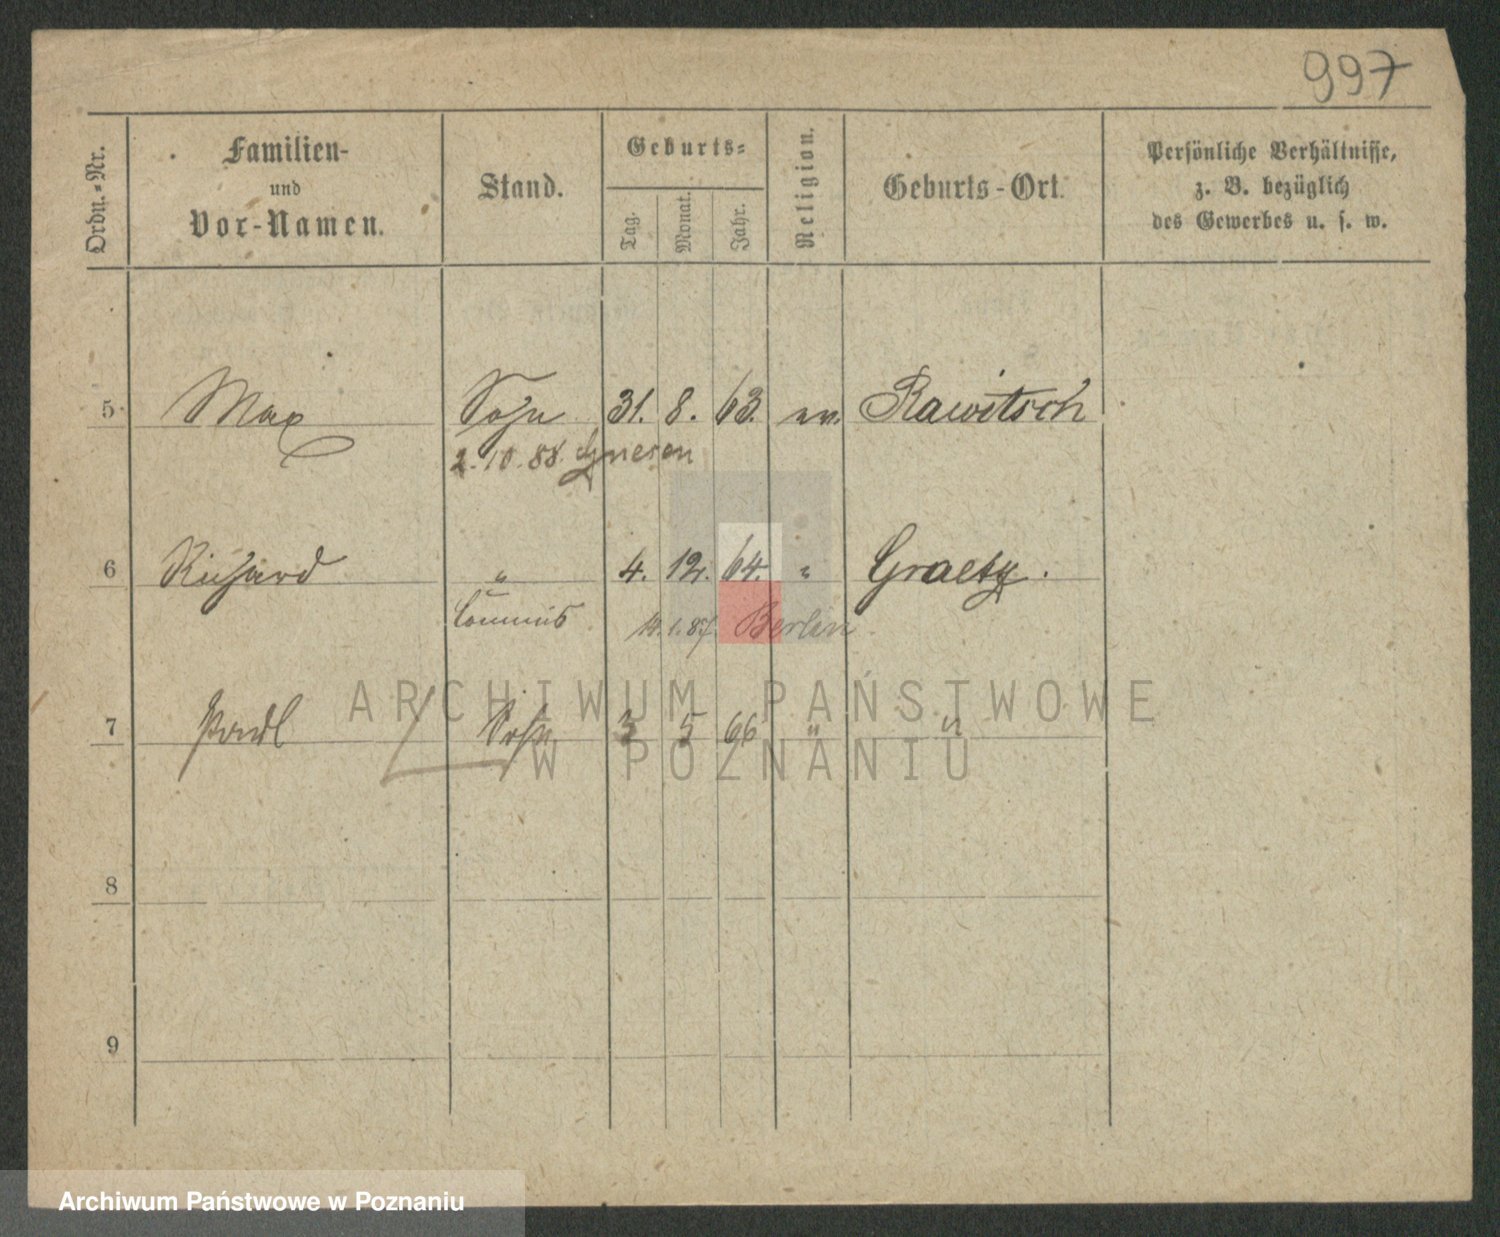 997
Ordn.-Nr.
Familien-
und
Vor-Namen.
Stand.
Geburts-
Tag. Monat. Jahr.
Religion.
Geburts-Ort.
Persönliche Verhältnisse,
z. B. bezüglich
des Gewerbes u. s. w.
5 Max Sohn 31. 8. 63. ev. Rawitsch
2.10.88. Gnesen
6 Richard " 4. 12. 64. " Graetz.
Commis 14.1.87 Berlin
ARCHIWUM PAŃSTWOWE
7 Paul Sohn 3 5 66 " "
W POZNANIU
8
9
Archiwum Państwowe w Poznaniu